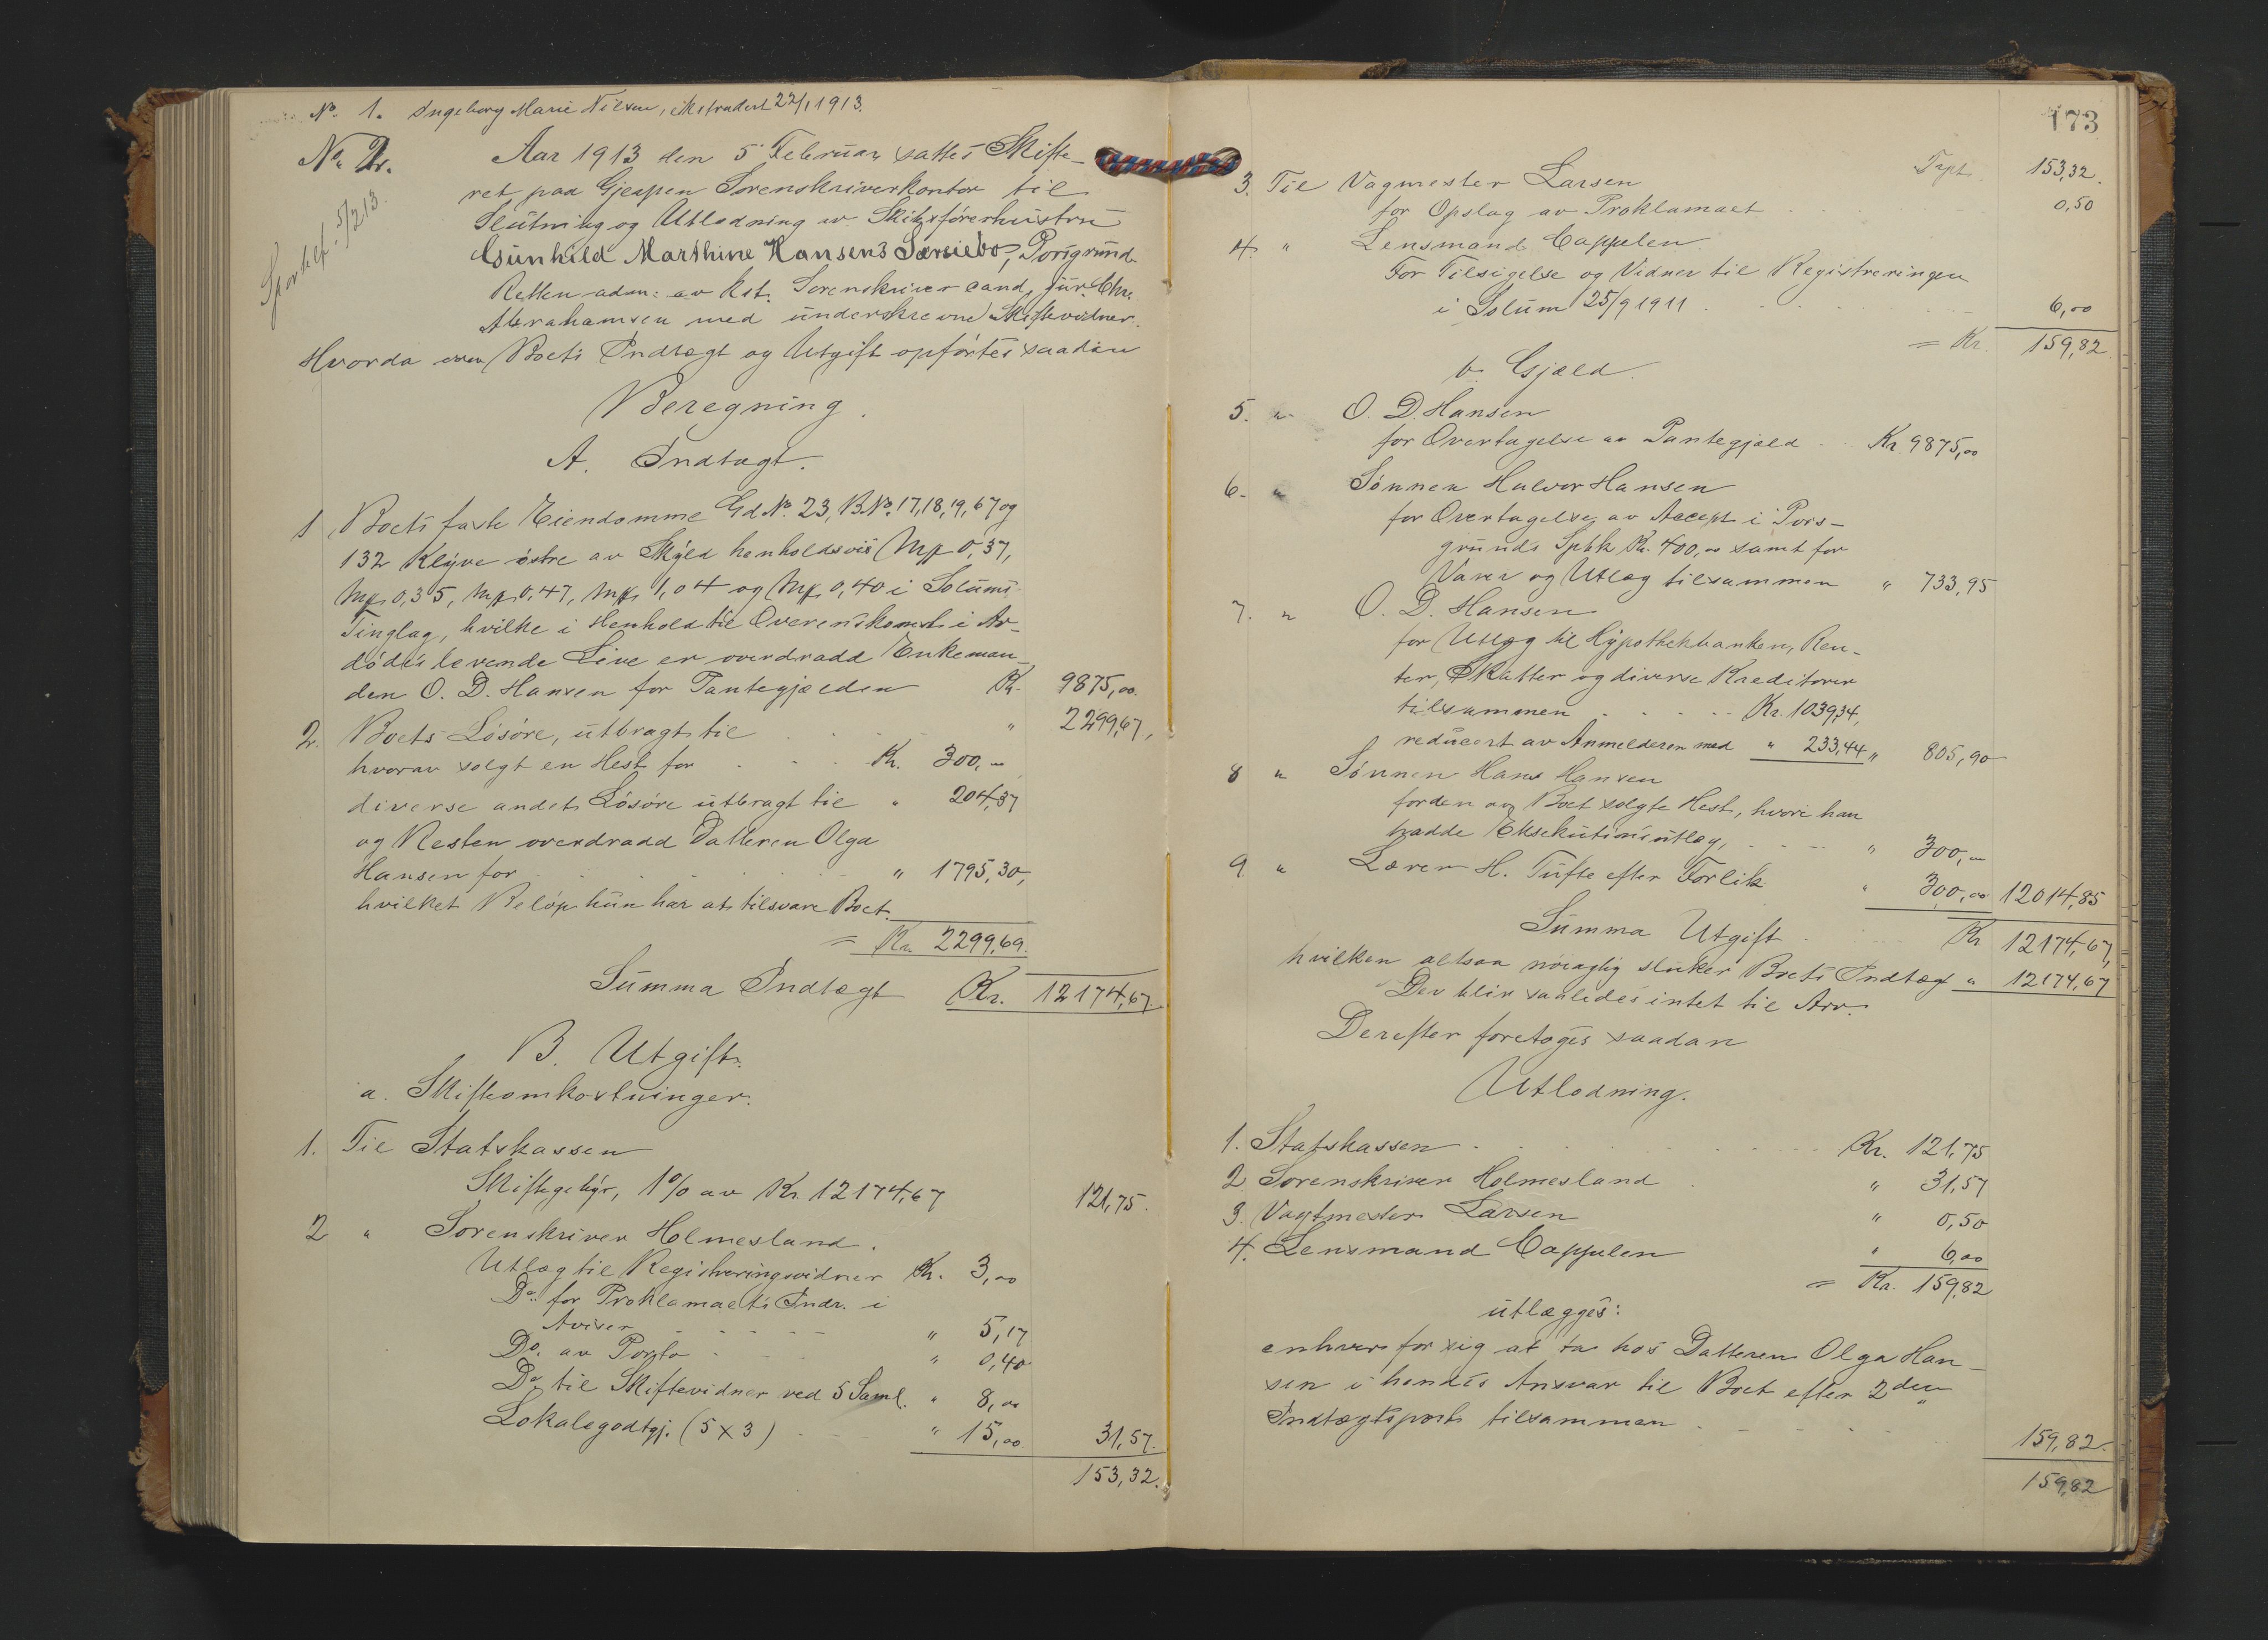 No. 1. Ingeborg Marie Nilsen, ekstradert 22/1 1913.
No. 2.
Aar 1913 den 5 Februar sattes Skifte-
ret paa Gjerpen Sorenskriverkontor til
Slutning og Utlodning av Skibsförerhustru
Gunhild Marthine Hansens Særsiebo, Porsgrund.
Retten adm: av kst. Sorenskriver cand. jur. Chr.
Abrahamsen med underskrevne Skiftevidner.
Hvorda Boets Indtægt og Utgift opførtes saadan
Beregning.
A. Indtægt.
1 Boets faste Eiendomme Gd No. 23, B.No. 17, 18, 19, 67 og
132 Klyve østre av Skyld henholdsvis Mp 0,37,
Mp 0,35, Mp 0,47, Mp 1,04 og Mp 0,40 i Solums
Tinglag, hvilke i Henhold til Overenskomst i Av-
dødes levende Live er overdradd Enkeman-
den O. D. Hansen for Pantegjælden Kr. 9875,00
2. Boets Løsøre, utbragt til " 2299,67,
hvorav solgt en Hest for Kr. 300,00
diverse andet Løsøre utbragt til " 204,37
og Resten overdradd Datteren Olga
Hansen for " 1795,30,
hvilket Beløp hun har at tilsvare Boet.
= Kr. 2299,69.
Summa Indtægt Kr. 12174,67
B. Utgift.
a. Skifteomkostninger.
1. Til Statskassen
Skiftegebyr, 1% av Kr 12174,67 121,75.
2 " Sorenskriver Holmesland.
Utlæg til Registreringsvidner Kr. 3,00
Do. for Proklamaets Indr. i
Aviser " 5,17
Do. av Porto " 0,40
Do. til Skiftevidner ved 5 Saml. " 8,00
Lokalegodtgj. (5 x 3) " 15,00 31,57.
153,32.
173
Trpt 153,32.
3. Til Vagmester Larsen
for Opslag av Proklamaet 0,50
4. " Lensmand Cappelen.
For Tilsigelse og Vidner til Registreringen
i Solum 25/9 1911 6,00
= Kr. 159,82
b. Gjæld.
5. " O. D. Hansen
for Overtagelse av Pantegjæld Kr. 9875,00
6. " Sønnen Halvor Hansen
for Overtagelse av Accept i Pors-
grunds Spbk Kr. 400,00 samt for
Varer og Utlæg tilsammen " 733,95
7. " O. D. Hansen
for Utlæg til Hypothekbanken, Ren-
ter, Skatter og diverse Kreditorer
tilsammen Kr. 1039,34,
reducert av Anmelderen med " 233,44 " 805,90
8 " Sønnen Hans Hansen
for den av Boet solgte Hest, hvori han
hadde Eksekutionsutlæg, " 300,00
9 " Lærer H. Tufte efter Forlik " 300,00 12014,85
Summa Utgift Kr 12174,67,
hvilken altsaa nøiagtig sluker Boets Indtægt " 12174,67
Der blir saaledes intet til Arv.
Derefter foretoges saadan
Utlodning.
1. Statskassen Kr. 121,75
2 Sorenskriver Holmesland " 31,57
3. Vagtmester Larsen " 0,50
4. Lensmand Cappelen " 6,00
= Kr. 159,82
utlægges:
enhver for sig at ta hos Datteren Olga Han-
sen i hendes Ansvar til Boet efter 2den
Indtægtspost tilsammen 159,82.
159,82